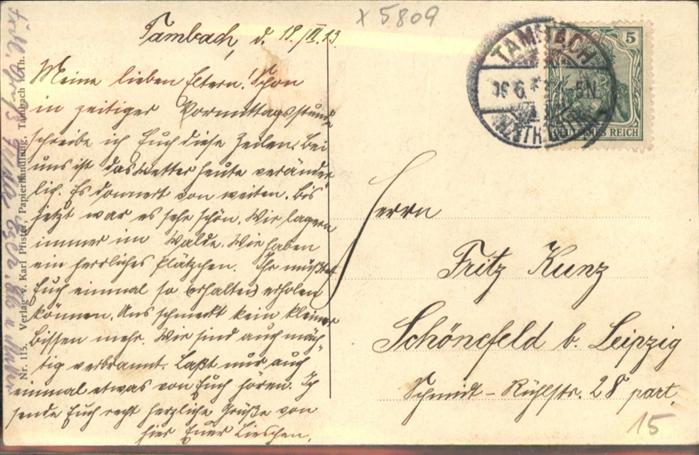 x 5809
Tambach, d. 18./VI.13.
Meine lieben Eltern! Schon
in zeitiger Vormittagsstunde
schreibe ich Euch diese Zeilen. Bei
uns ist das Wetter heute veränder
lich. Es donnert von weiten. Bis
jetzt war es sehr schön. Wir lagern
immer im Walde. Wir haben
ein herrliches Plätzchen. Ihr müßtet
Euch einmal so erhalten erholen
können. Uns schmeckt kein kleiner
Bissen mehr. Wir sind auch mäch
tig verbrannt. Laßt nur auch
einmal etwas von Euch hören. Ich
sende Euch recht herzliche Grüße von
hier Euer Lieschen.
Nr. 115. Verlag v. Karl Pfister, Papierhandlung, Tambach i. Th.
TAMBACH
5
DEUTSCHES REICH
Herrn
Fritz Kunz
Schönefeld b. Leipzig
Schmidt-Rühlstr. 28 part.
15